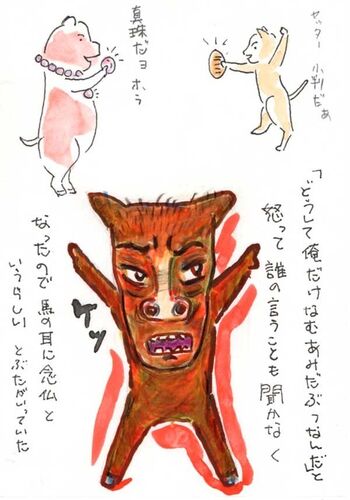 ヤッター
小判だぁ
真珠だヨ
ホラ
「どうして俺だけなむあみだぶつなんだ」と
怒って誰の言うことも聞かなく
なったので馬の耳に念仏と
いうらしい とぶたがいっていた
ケッ